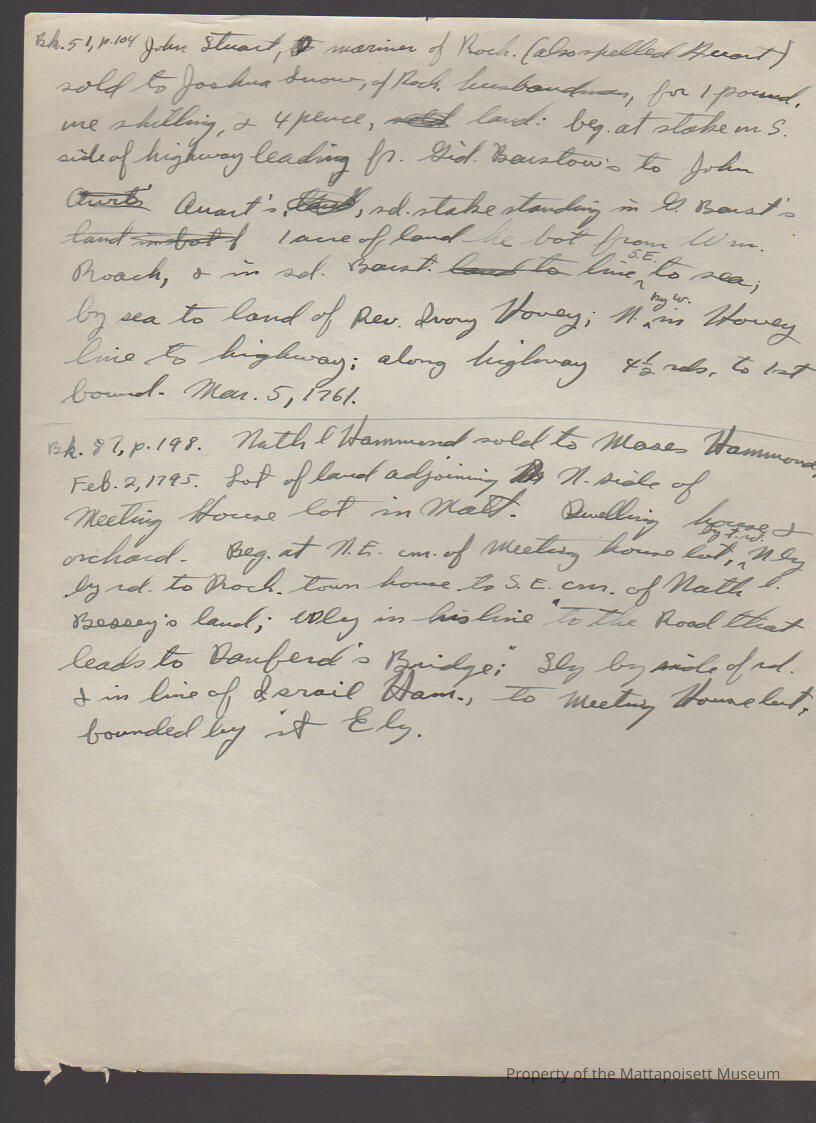 Bk. 51, p.104 John Stuart, mariner of Roch. (also spelled Auart)
sold to Joshua Snow, of Roch. husbandman, for 1 pound,
one shilling, & 4 pence, sold land: beg. at stake in S.
side of highway leading fr. Gid. Barstow's to John
Auart's, land, sd. stake standing in G. Barst's
land in bot f 1 acre of land he bot from Wm.
Roach, & in sd. Barst. land to line S.E. to sea;
by sea to land of Rev. Ivory Hovey; N. by W. in Hovey
line to highway; along highway 4½ rds. to 1st
bound. Mar. 5, 1761.
Bk. 87, p.198. Nath'l Hammond sold to Moses Hammond,
Feb. 2, 1795. Lot of land adjoining N. side of
Meeting House lot in Matt. Dwelling house &
orchard. Beg. at N.E. crn. of Meeting house lot, Nly
by rd. to Roch. town house to S.E. crn. of Nath'l.
Bessey's land; Wly in his line "to the Road that
leads to Danferd's Bridge;" Sly by side of rd.
& in line of Israil Ham., to Meeting House lot;
bounded by it Ely.
Property of the Mattapoisett Museum